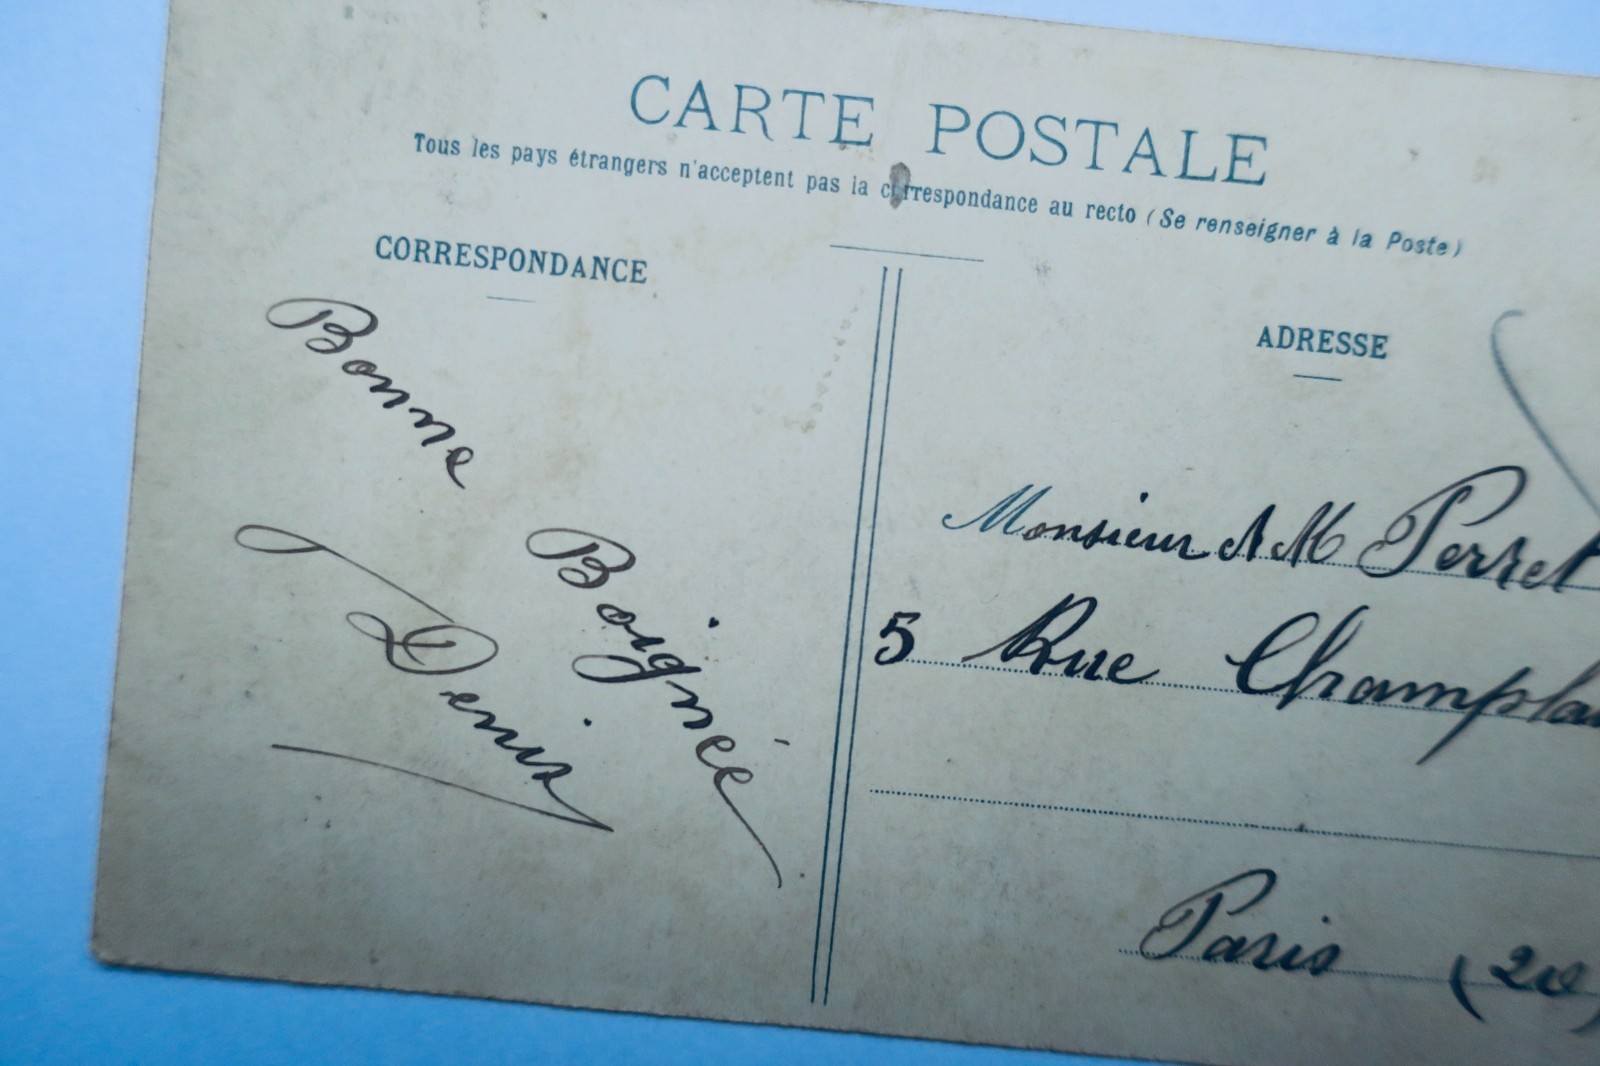 CARTE POSTALE
Tous les pays étrangers n'acceptent pas la correspondance au recto (Se renseigner à la Poste)
CORRESPONDANCE
Bonne
Boignée
Denis
ADRESSE
Monsieur A M Perret
5 Rue Champlai
Paris (20